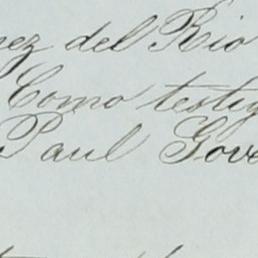 nez del Rio
Como testig
Paul Gove